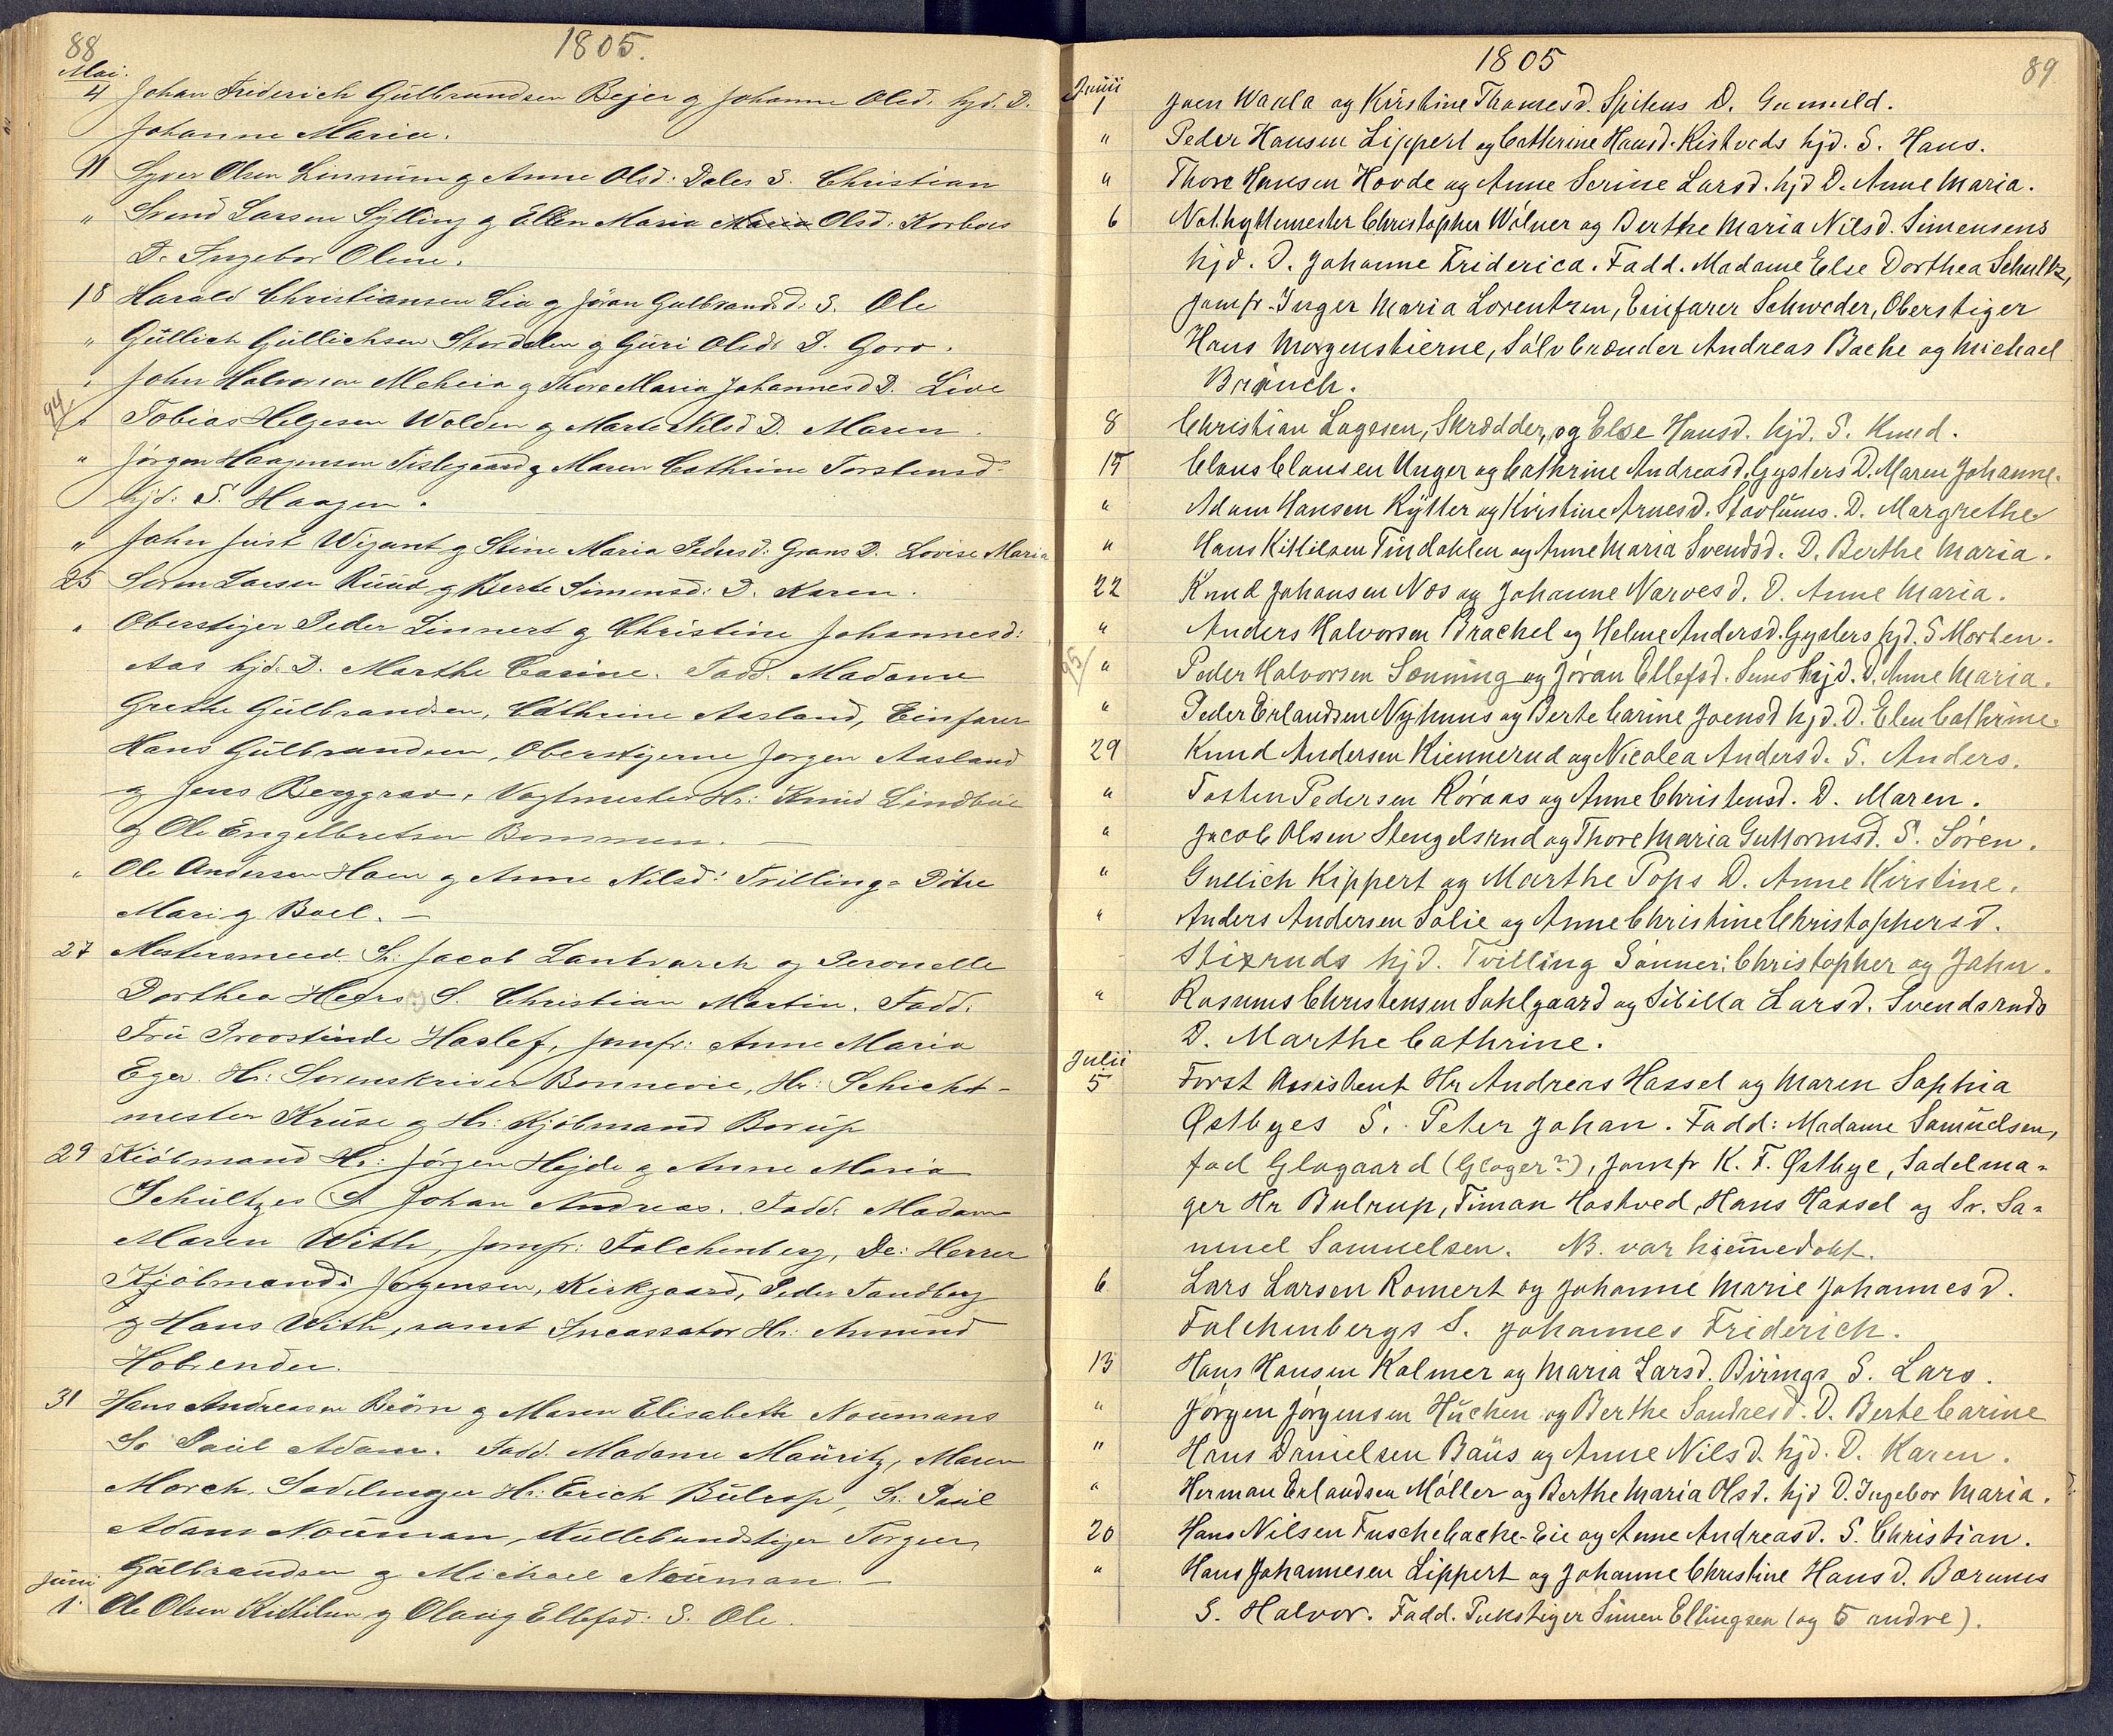 88
1805.
Mai.
4 Johan Friderich Gülbrandsen Bejer og Johanne Olsd. hjd. D.
Johanne Maria.
11 Syver Olsen Linnüm og Anne Olsd: Dales S. Christian
" Svend Larsen Sÿlling og Ellen Maria Maria Olsd: Korboes
D. Ingebor Olene.
18 Harald Christiansen Lia og Jöran Gulbrandsd: S. Ole
" Güllich Güllichsen Stordalen og Güri Olsd: D. Goro.
" John Halvorsen Meheia og Thore Maria Johannesd D. Live
94
" Tobias Helgesen Wolden og Marte Nilsd D. Maren.
" Jörgen Haagensen Tislegaard og Maren Cathrine Torstensd:
hjd: S. Haagen.
" John Just Wigant og Stine Maria Pedersd: Grans D. Lovise Maria
25 Soren Larsen Rüüd og Berte Simensd: D. Karen.
" Oberstiger Peder Linnert og Christine Johannesd:
Aas hjd. D. Marthe Carine. Fadd. Madame
Grethe Gülbrandsen, Cathrine Aasland, Einfarer
Hans Gülbrandsen, Oberstigerne Jorgen Aasland
og Jens Berggrav, Vagtmester Hr: Knüd Lindboe
og Ole Engelbretsen Bommen. —
" Ole Andersen Hoen og Anne Nilsd: Trilling= Döttre
Mari og Boel. —
27 Mestersmed Sr: Jacob Lantvarch og Peronelle
Dorthea Heers S. Christian Martin. Fadd.
Frü Proostinde Haslef, Jomfr: Anne Maria
Eger. Hr: Sorenskriver Bonnevie, Hr: Schicht-
mester Krüse og Hr: Kjöbmand Borüp
29 Kiöbmand Hr: Jörgen Hejde og Anne Maria
Schültzes S. Johan Andreas. Fadd. Madam
Maren With, Jomfr: Falchenberg, De: Herrer
Kjöbmænd: Jörgensen, Kirkgaard, Peder Tandberg
og Hans With, samt Incassator Hr: Amünd
Hobrender.
31 Hans Andreasen Biörn og Maren Elisabeth Noümans
S. Paül Adam. Fadd. Madame Maüritz, Maren
Morch, Sadelmager Hr: Erich Bülrop, Sr: Paül
Adam Noüman, Küllebrændstiger Torger
Gülbrandsen og Michael Noüman. —
Juni
1. Ole Olsen Kittilsen og Olaug Ellefsd: S. Ole.
1805
89
Junii
1 Joen Waala og Kirstine Thomesd. Spitens D. Gunnild.
" Peder Hansen Lippert og Cathrine Hansd. Kistveds hjd. S. Hans.
" Thore Hansen Hovde og Anne Serine Larsd. hjd D. Anne Maria.
6 Nathyttemester Christopher Wölner og Berthe Maria Nilsd. Simensens
hjd. D. Johanne Friderica. Fadd. Madame Else Dorthea Schultz,
Jomfr. Inger Maria Lorentzen, Einfarer Schwder, Oberstiger
Hans Morgenstierne, Sölvbrænder Andreas Bache og Michael
Brönch.
8 Christian Lagesen, Skrædder, og Else Hansd. hjd. S. Knud.
15 Claus Clausen Unger og Cathrine Andreasd. Gyslers D. Maren Johanne.
" Adam Hansen Rÿtter og Kirstine Arnesd. Stavlums. D. Margrethe
" Hans Kittilsen Tindahlen og Anne Maria Svendsd. D. Berthe Maria.
22 Knud Johansen Nos og Johanne Narvesd. D. Anne Maria.
" Anders Halvorsen Brackel og Helene Andersd. Gyslers hjd. S Morten.
95
" Peder Halvorsen Sonning og Jöran Ellefsd. Sems hjd. D. Anne Maria.
" Peder Erlandsen Nyhuus og Berte Carine Joensd hjd. D. Elen Cathrine.
29 Knud Andersen Kiennerud og Nicolea Andersd. S. Anders.
" Tosten Pedersen Röraas og Anne Christensd. D. Maren.
" Jacob Olsen Stengelsrud og Thore Maria Guttormsd. S. Sören.
" Gullich Kippert og Marthe Pops D. Anne Kirstine.
" Anders Andersen Solie og Anne Christine Christophersd.
Stixruds hjd. Tvilling Sönner: Christopher og John.
" Rasmus Christensen Sahlgaard og Sibilla Larsd. Svendsruds
D. Marthe Cathrine.
Julii
5 Forst Assistent Hr Andreas Hassel og Maren Sophia
Østbyes S. Peter Johan. Fadd: Madame Samuelsen,
fad Glogaard (Gloger?), Jomfr K. F. Østbye, Sadelma=
ger Hr Bulrup, Timan Hostved, Hans Hassel og Sr. Sa=
muel Samuelsen. NB. var hiemmedobt.
6 Lars Larsen Romert og Johanne Marie Johannesd.
Falchenbergs S. Johannes Friderich.
13 Hans Hansen Kolmer og Maria Larsd. Birings S. Lars.
" Jörgen Jörgensen Hüchen og Berthe Sandresd. D. Berte Carine
" Hans Danielsen Baüs og Anne Nilsd. hjd. D. Karen.
" Herman Erlandsen Möller og Berthe Maria Olsd. hjd D. Ingebor Maria.
20 Hans Nilsen Fuschebacke-Eie og Anne Andreasd. S. Christian.
" Hans Johannesen Lippert og Johanne Christine Hansd. Bærums
S. Halvor. Fadd. Pukstiger Simen Ellingsen (og 5 andre).